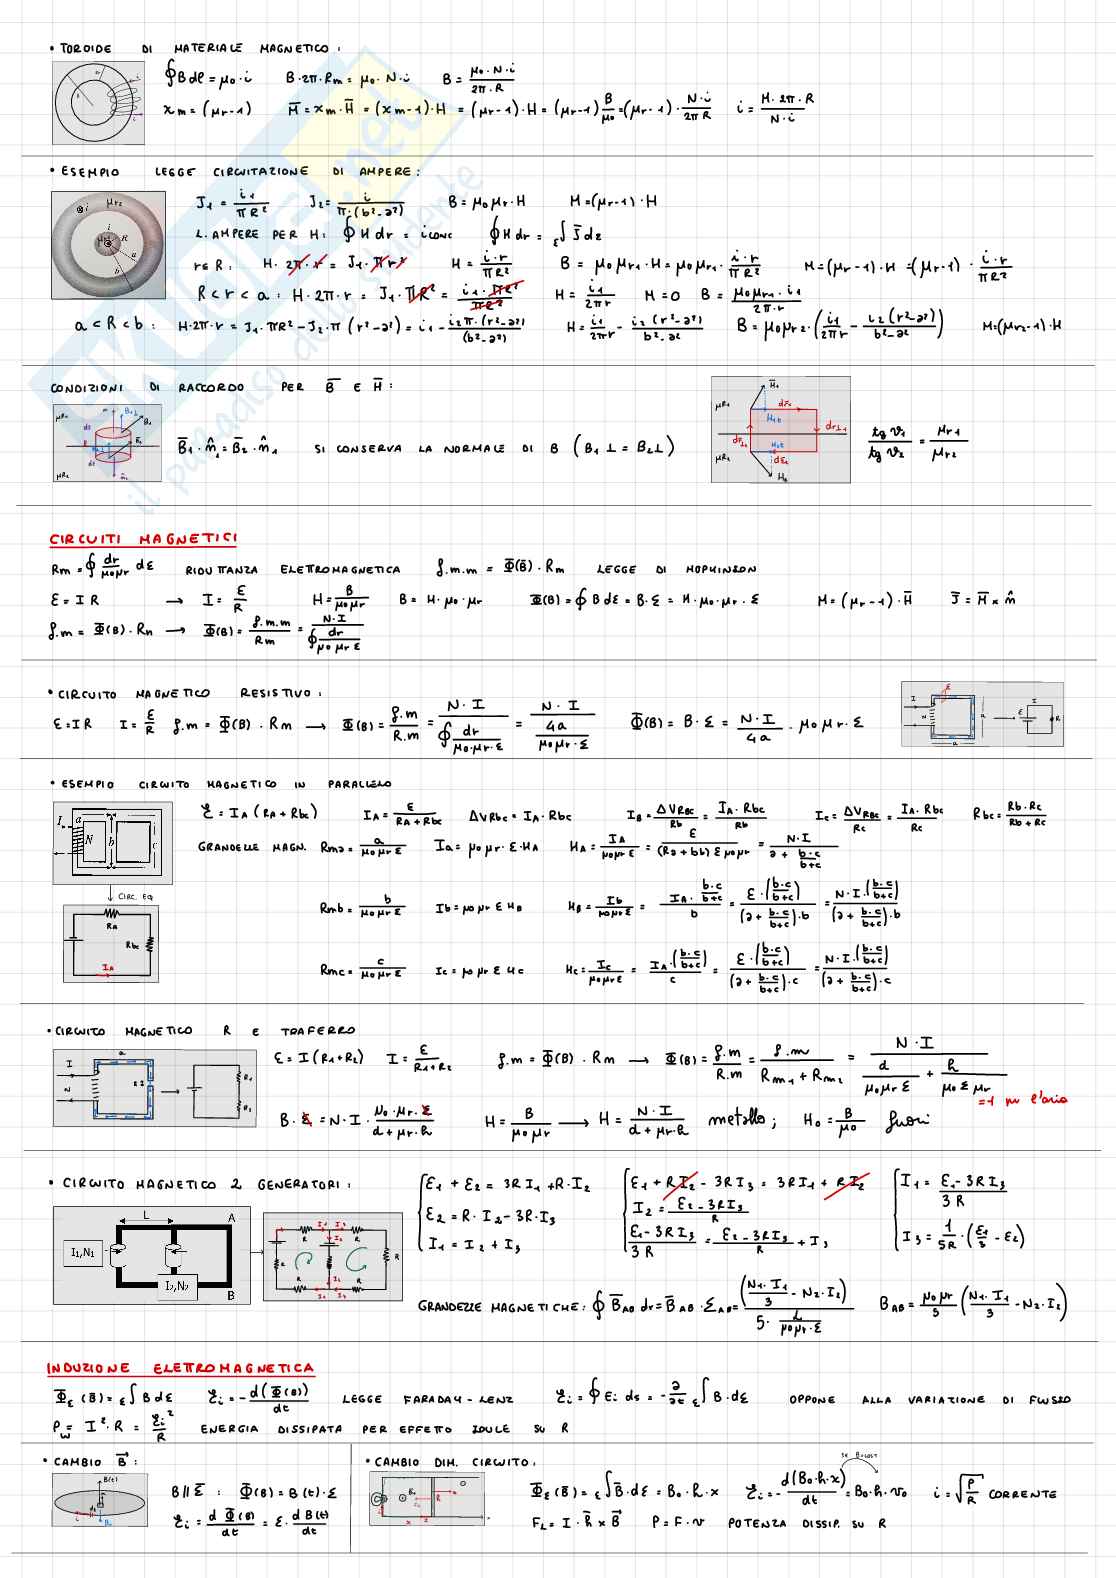 • TOROIDE DI MATERIALE MAGNETICO:
∮B dℓ = μ₀·i   B·2π·Rm = μ₀·N·i   B = μ₀·N·i / 2π·R
xm = (μr-1)   M̄ = xm·H̄ = (xm-1)·H = (μr-1)·H = (μr-1) B/μ₀ = (μr-1)· N·i / 2πR   i = M·2π·R / N·i
• ESEMPIO LEGGE CIRCUITAZIONE DI AMPERE:
J₁ = i₁ / πR²   J₂ = i / π·(b²-a²)   B = μ₀μr·H   M = (μr-1)·H
L. AMPERE PER H: ∮H dr = iconc   ∮H dr = Σ∫ J̄ dΣ
r∈R: H·2π·r = J₁·πr²   H = i·r / πR²   B = μ₀μr₁·H = μ₀μr₁· i·r / πR²   M = (μr-1)·H = (μr-1)· i·r / πR²
R<r<a: H·2π·r = J₁·πR² = i₁·πR² / πR²   H = i₁ / 2πr   M=0   B = μ₀μr₁·i₁ / 2π·r
a<R<b: H·2π·r = J₁·πR² - J₂·π(r²-a²) = i₁ - i₂π·(r²-a²) / (b²-a²)   H = i₁/2πr - i₂(r²-a²) / b²-a²   B = μ₀μr₂·(i₁/2πr - i₂(r²-a²) / b²-a²)   M=(μr₂-1)·H
CONDIZIONI DI RACCORDO PER B̄ E H̄:
B̄₁·n̂₁ = B̄₂·n̂₁   SI CONSERVA LA NORMALE DI B (B₁⊥ = B₂⊥)   tg ϑ₁ / tg ϑ₂ = μr₁ / μr₂
CIRCUITI MAGNETICI
Rm = ∮ dr / μ₀μr dΣ   RIDUTTANZA ELETTROMAGNETICA   f.m.m = Φ(B̄)·Rm   LEGGE DI HOPKINSON
ε = I R → I = ε/R   H = B / μ₀μr   B = H·μ₀·μr   Φ(B) = ∮ B dΣ = B·Σ = H·μ₀·μr·Σ   M = (μr-1)·H̄   J̄ = M̄ × n̂
f.m = Φ(B)·Rm → Φ(B) = f.m.m / Rm = N·I / ∮ dr / μ₀μrΣ
• CIRCUITO MAGNETICO RESISTIVO:
ε = IR   I = ε/R   f.m = Φ(B)·Rm → Φ(B) = f.m / R.m = N·I / ∮ dr / μ₀·μr·Σ = N·I / 4a / μ₀μr·Σ   Φ(B) = B·Σ = N·I / 4a · μ₀μr·Σ
• ESEMPIO CIRCUITO MAGNETICO IN PARALLELO
I a N b c
ε = IA(RA+Rbc)   IA = ε / RA+Rbc   ΔVRbc = IA·Rbc   IB = ΔVRBC / Rb = IA·Rbc / Rb   Ic = ΔVRBC / Rc = IA·Rbc / Rc   Rbc = Rb·Rc / Rb+Rc
GRANDEZZE MAGN. Rma = a / μ₀μrΣ   Ia = μ₀μr·Σ·HA   HA = IA / μ₀μrΣ = ε / (Ra+bb)Σμ₀μr = N·I / a + b·c / b+c
CIRC. EQ
RA Rbc IA
Rmb = b / μ₀μrΣ   Ib = μ₀μrΣHB   HB = Ib / μ₀μrΣ = IA· b·c/b+c / b = ε·(b·c/b+c) / (a + b·c/b+c)·b = N·I·(b·c/b+c) / (a + b·c/b+c)·b
Rmc = c / μ₀μrΣ   Ic = μ₀μrΣHc   Hc = Ic / μ₀μrΣ = IA·(b·c/b+c) / c = ε·(b·c/b+c) / (a + b·c/b+c)·c = N·I·(b·c/b+c) / (a + b·c/b+c)·c
• CIRCUITO MAGNETICO R E TRAFERRO
ε = I(R₁+R₂)   I = ε / R₁+R₂   f.m = Φ(B)·Rm → Φ(B) = f.m / R.m = f.m / Rm₁+Rm₂ = N·I / d / μ₀μrΣ + h / μ₀Σμr
=1 per l'aria
B·Σ = N·I· μ₀·μr·Σ / d+μr·h   H = B / μ₀μr → H = N·I / d+μr·h metallo; H₀ = B / μ₀ fuori
• CIRCUITO MAGNETICO 2 GENERATORI:
ε₁+ε₂ = 3RI₁+R·I₂   ε₁+RI₂-3RI₃ = 3RI₁+RI₂   I₁ = ε₁-3RI₃ / 3R
ε₂ = R·I₂-3R·I₃   I₂ = ε₂-3RI₃ / R   I₃ = 1/5R·(ε₁/3 - ε₂)
I₁ = I₂+I₃   ε₁-3RI₃ / 3R = ε₂-3RI₃ / R + I₃
L A I₁,N₁ I₂,N₂ B
GRANDEZZE MAGNETICHE: ∮B̄AB dr = B̄AB·ΣAB = (N₁·I₁/3 - N₂·I₂) / 5· L / μ₀μr·Σ   BAB = μ₀μr / 5 (N₁·I₁/3 - N₂·I₂)
INDUZIONE ELETTROMAGNETICA
ΦΣ(B̄) = Σ∫ B dΣ   εi = - d(Φ(B)) / dt   LEGGE FARADAY-LENZ   εi = ∮ Ei ds = - ∂/∂t Σ∫ B·dΣ   OPPONE ALLA VARIAZIONE DI FLUSSO
Pw = I²·R = εi² / R   ENERGIA DISSIPATA PER EFFETTO JOULE SU R
• CAMBIO B̄:
B(t)
B∥Σ̄ : Φ(B) = B(t)·Σ
εi = d Φ(B) / dt = Σ· d B(t) / dt
• CAMBIO DIM. CIRCUITO:
se B=cost
ΦΣ(B̄) = Σ∫ B̄·dΣ = B₀·h·x   εi = - d(B₀·h·x) / dt = B₀·h·v₀   i = √P/R CORRENTE
FL = I·h̄×B̄   P = F·v   POTENZA DISSIP. SU R
skuola.net
il paradiso dello studente